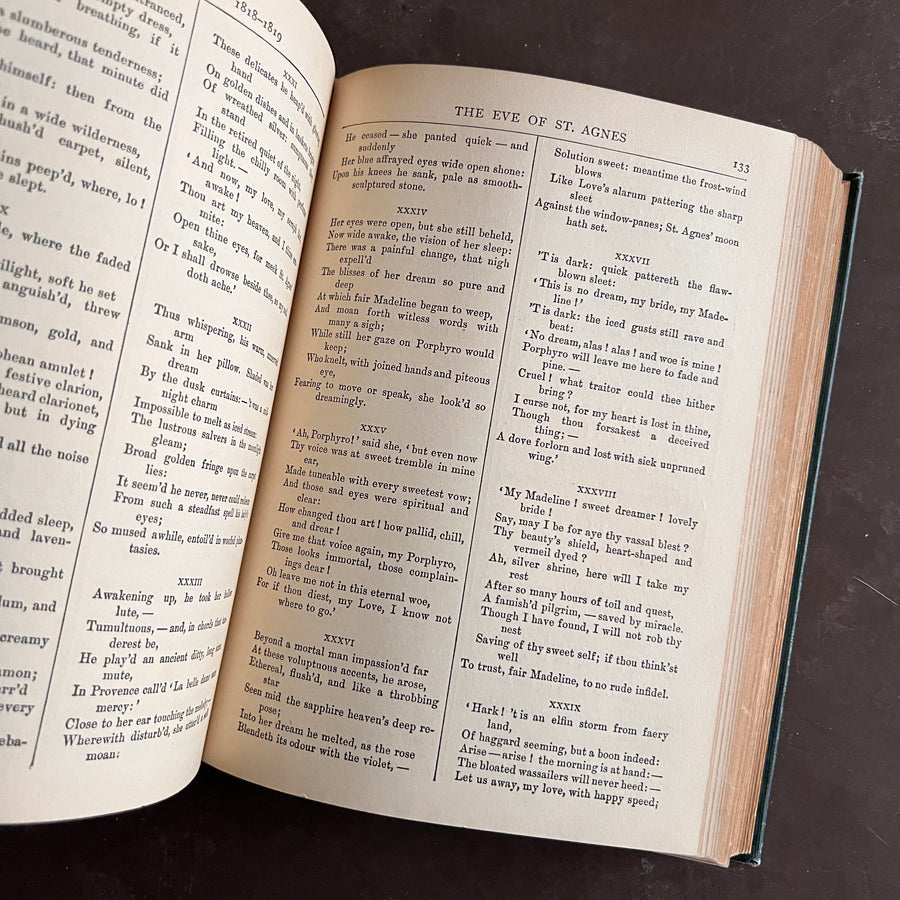 tranced,
mpty dress,
breathing, if it
a slumberous tenderness;
he heard, that minute did
himself: then from the
in a wide wilderness,
hush'd carpet, silent,
ins peep'd, where, lo!
e slept.
X
e, where the faded
ilight, soft he set
anguish'd, threw
mson, gold, and
phean amulet!
festive clarion,
heard clarionet,
but in dying
d all the noise
dded sleep,
and laven-
t brought
lum, and
creamy
amon;
rr'd
every
eba-
1818-1819
XXXI
These delicates he heap'd with
hand
On golden dishes and in baskets
Of wreathed silver:
stand
In the retired quiet of the night,
Filling the chilly room with
light.—
'And now, my love, my seraph
awake!
Thou art my heaven, and I
mite:
Open thine eyes, for meek
sake,
Or I shall drowse beside thee, so my
doth ache.'
XXXII
Thus whispering, his warm,
arm
Sank in her pillow. Shaded
dream
By the dusk curtains:—'twas a
night charm
Impossible to melt as iced stream:
The lustrous salvers in the
gleam;
Broad golden fringe upon the carpet
lies:
It seem'd he never, never could redeem
From such a steadfast spell his lady's
eyes;
So mused awhile, entoil'd in woofed
tasies.
XXXIII
Awakening up, he took her hollow
lute,—
Tumultuous,—and, in chords that
derest be,
He play'd an ancient ditty, long since
mute,
In Provence call'd 'La belle dame sans
mercy:'
Close to her ear touching the melody;—
Wherewith disturb'd, she utter'd a soft
moan:
THE EVE OF ST. AGNES
133
He ceased—she panted quick—and
suddenly
Her blue affrayed eyes wide open shone:
Upon his knees he sank, pale as smooth-
sculptured stone.
XXXIV
Her eyes were open, but she still beheld,
Now wide awake, the vision of her sleep:
There was a painful change, that nigh
expell'd
The blisses of her dream so pure and
deep
At which fair Madeline began to weep,
And moan forth witless words with
many a sigh;
While still her gaze on Porphyro would
keep;
Who knelt, with joined hands and piteous
eye,
Fearing to move or speak, she look'd so
dreamingly.
XXXV
'Ah, Porphyro!' said she, 'but even now
Thy voice was at sweet tremble in mine
ear,
Made tuneable with every sweetest vow;
And those sad eyes were spiritual and
clear:
How changed thou art! how pallid, chill,
and drear!
Give me that voice again, my Porphyro,
Those looks immortal, those complain-
ings dear!
Oh leave me not in this eternal woe,
For if thou diest, my Love, I know not
where to go.'
XXXVI
Beyond a mortal man impassion'd far
At these voluptuous accents, he arose,
Ethereal, flush'd, and like a throbbing
star
Seen mid the sapphire heaven's deep re-
pose;
Into her dream he melted, as the rose
Blendeth its odour with the violet,—
Solution sweet: meantime the frost-wind
blows
Like Love's alarum pattering the sharp
sleet
Against the window-panes; St. Agnes' moon
hath set.
XXXVII
'Tis dark: quick pattereth the flaw-
blown sleet:
'This is no dream, my bride, my Made-
line!'
'Tis dark: the iced gusts still rave and
beat:
'No dream, alas! alas! and woe is mine!
Porphyro will leave me here to fade and
pine.—
Cruel! what traitor could thee hither
bring?
I curse not, for my heart is lost in thine,
Though thou forsakest a deceived
thing;—
A dove forlorn and lost with sick unpruned
wing.'
XXXVIII
'My Madeline! sweet dreamer! lovely
bride!
Say, may I be for aye thy vassal blest?
Thy beauty's shield, heart-shaped and
vermeil dyed?
Ah, silver shrine, here will I take my
rest
After so many hours of toil and quest,
A famish'd pilgrim,—saved by miracle.
Though I have found, I will not rob thy
nest
Saving of thy sweet self; if thou think'st
well
To trust, fair Madeline, to no rude infidel.
XXXIX
'Hark! 't is an elfin storm from faery
land,
Of haggard seeming, but a boon indeed:
Arise—arise! the morning is at hand:—
The bloated wassailers will never heed:—
Let us away, my love, with happy speed;